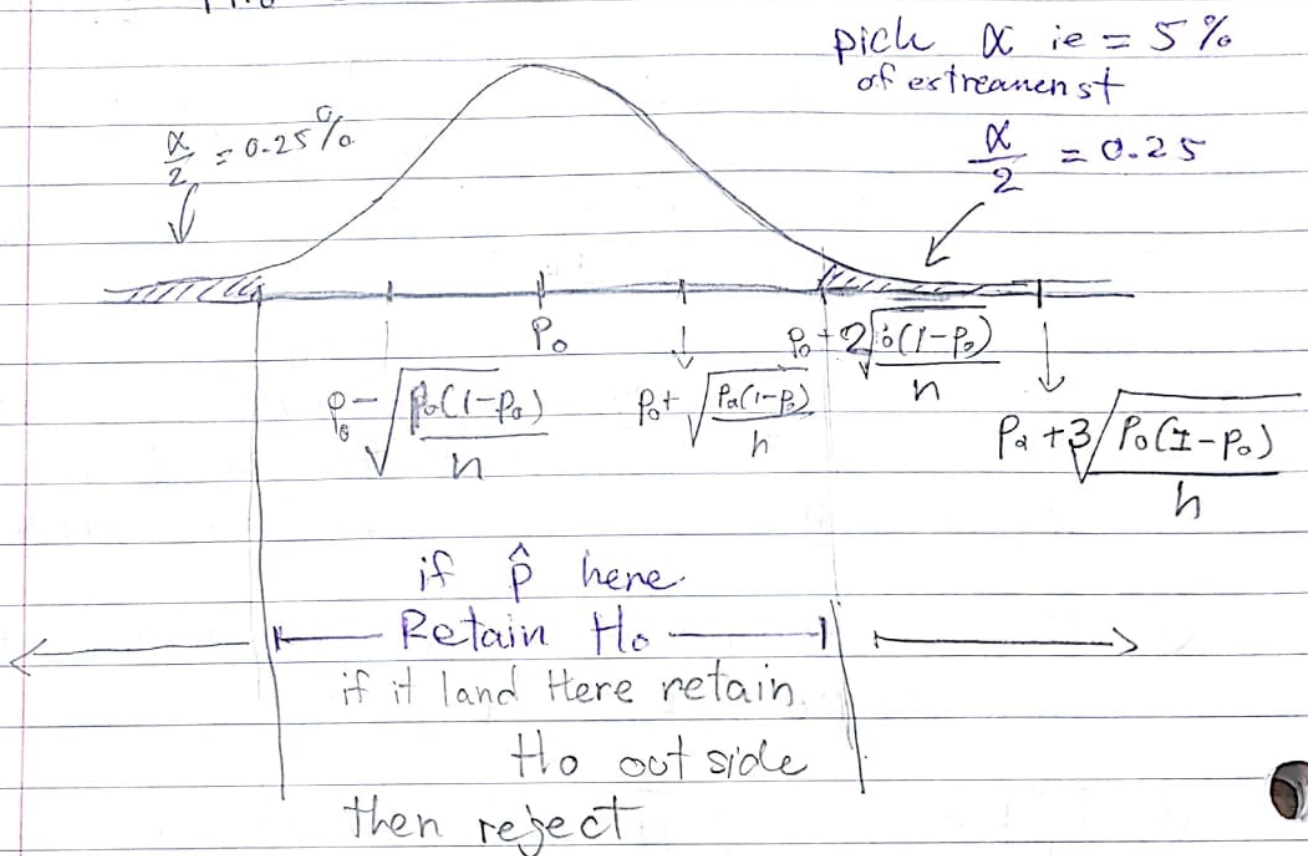 pick α ie = 5%
of estreamenst
α/2 = 0.25%
α/2 = 0.25
P₀
p₀ - √(p₀(1-p₀)/n)
p₀+ √(p₀(1-p₀)/n)
p₀ + 2√(p₀(1-p₀)/n)
P₀ +3√(P₀(1-p₀)/n)
if p̂ here.
Retain H₀
if it land Here retain
Ho out side
then reject